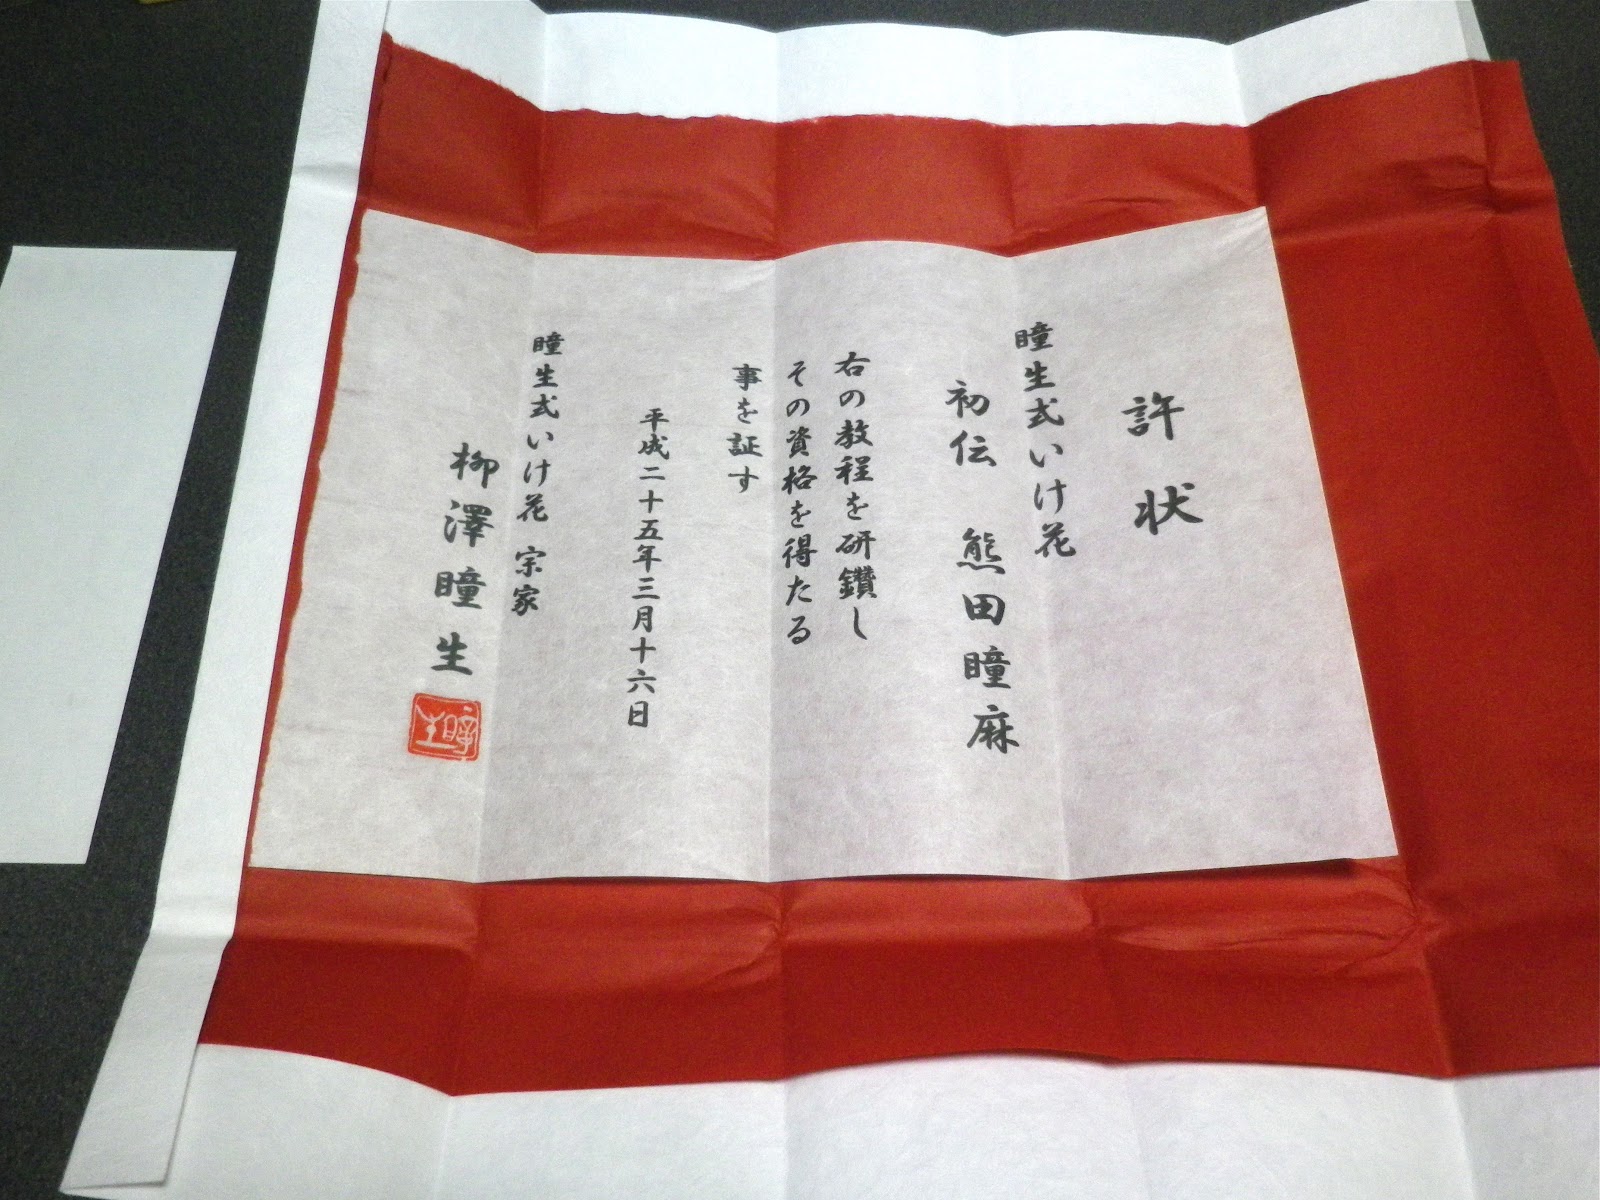 許状
瞳生式いけ花
初伝 熊田瞳麻
右の教程を研鑽し
その資格を得たる
事を証す
平成二十五年三月十六日
瞳生式いけ花 宗家
柳澤瞳生
瞳生